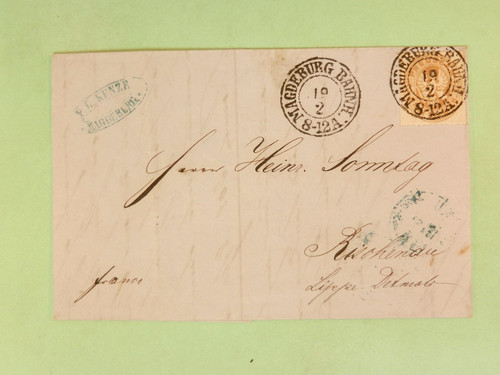 KUNZE
MAGDEBURG.
MAGDEBURG BAHNH.
19
2
8-12 A.
MAGDEBURG BAHNH.
19
2
8-12 A.
Herrn Heinr. Sonntag
Rischenau
franco
Lippe-Detmold